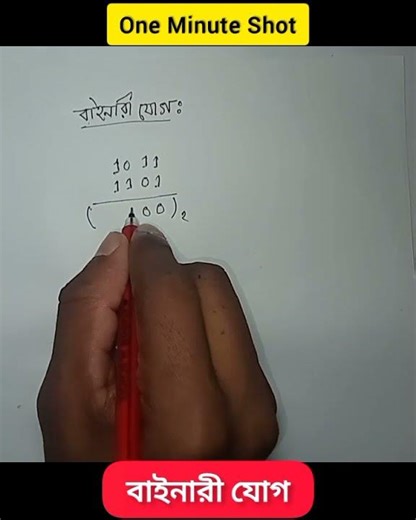 One Minute Shot
বাইনারি যোগঃ
1011
1101
( 00)₂
বাইনারী যোগ